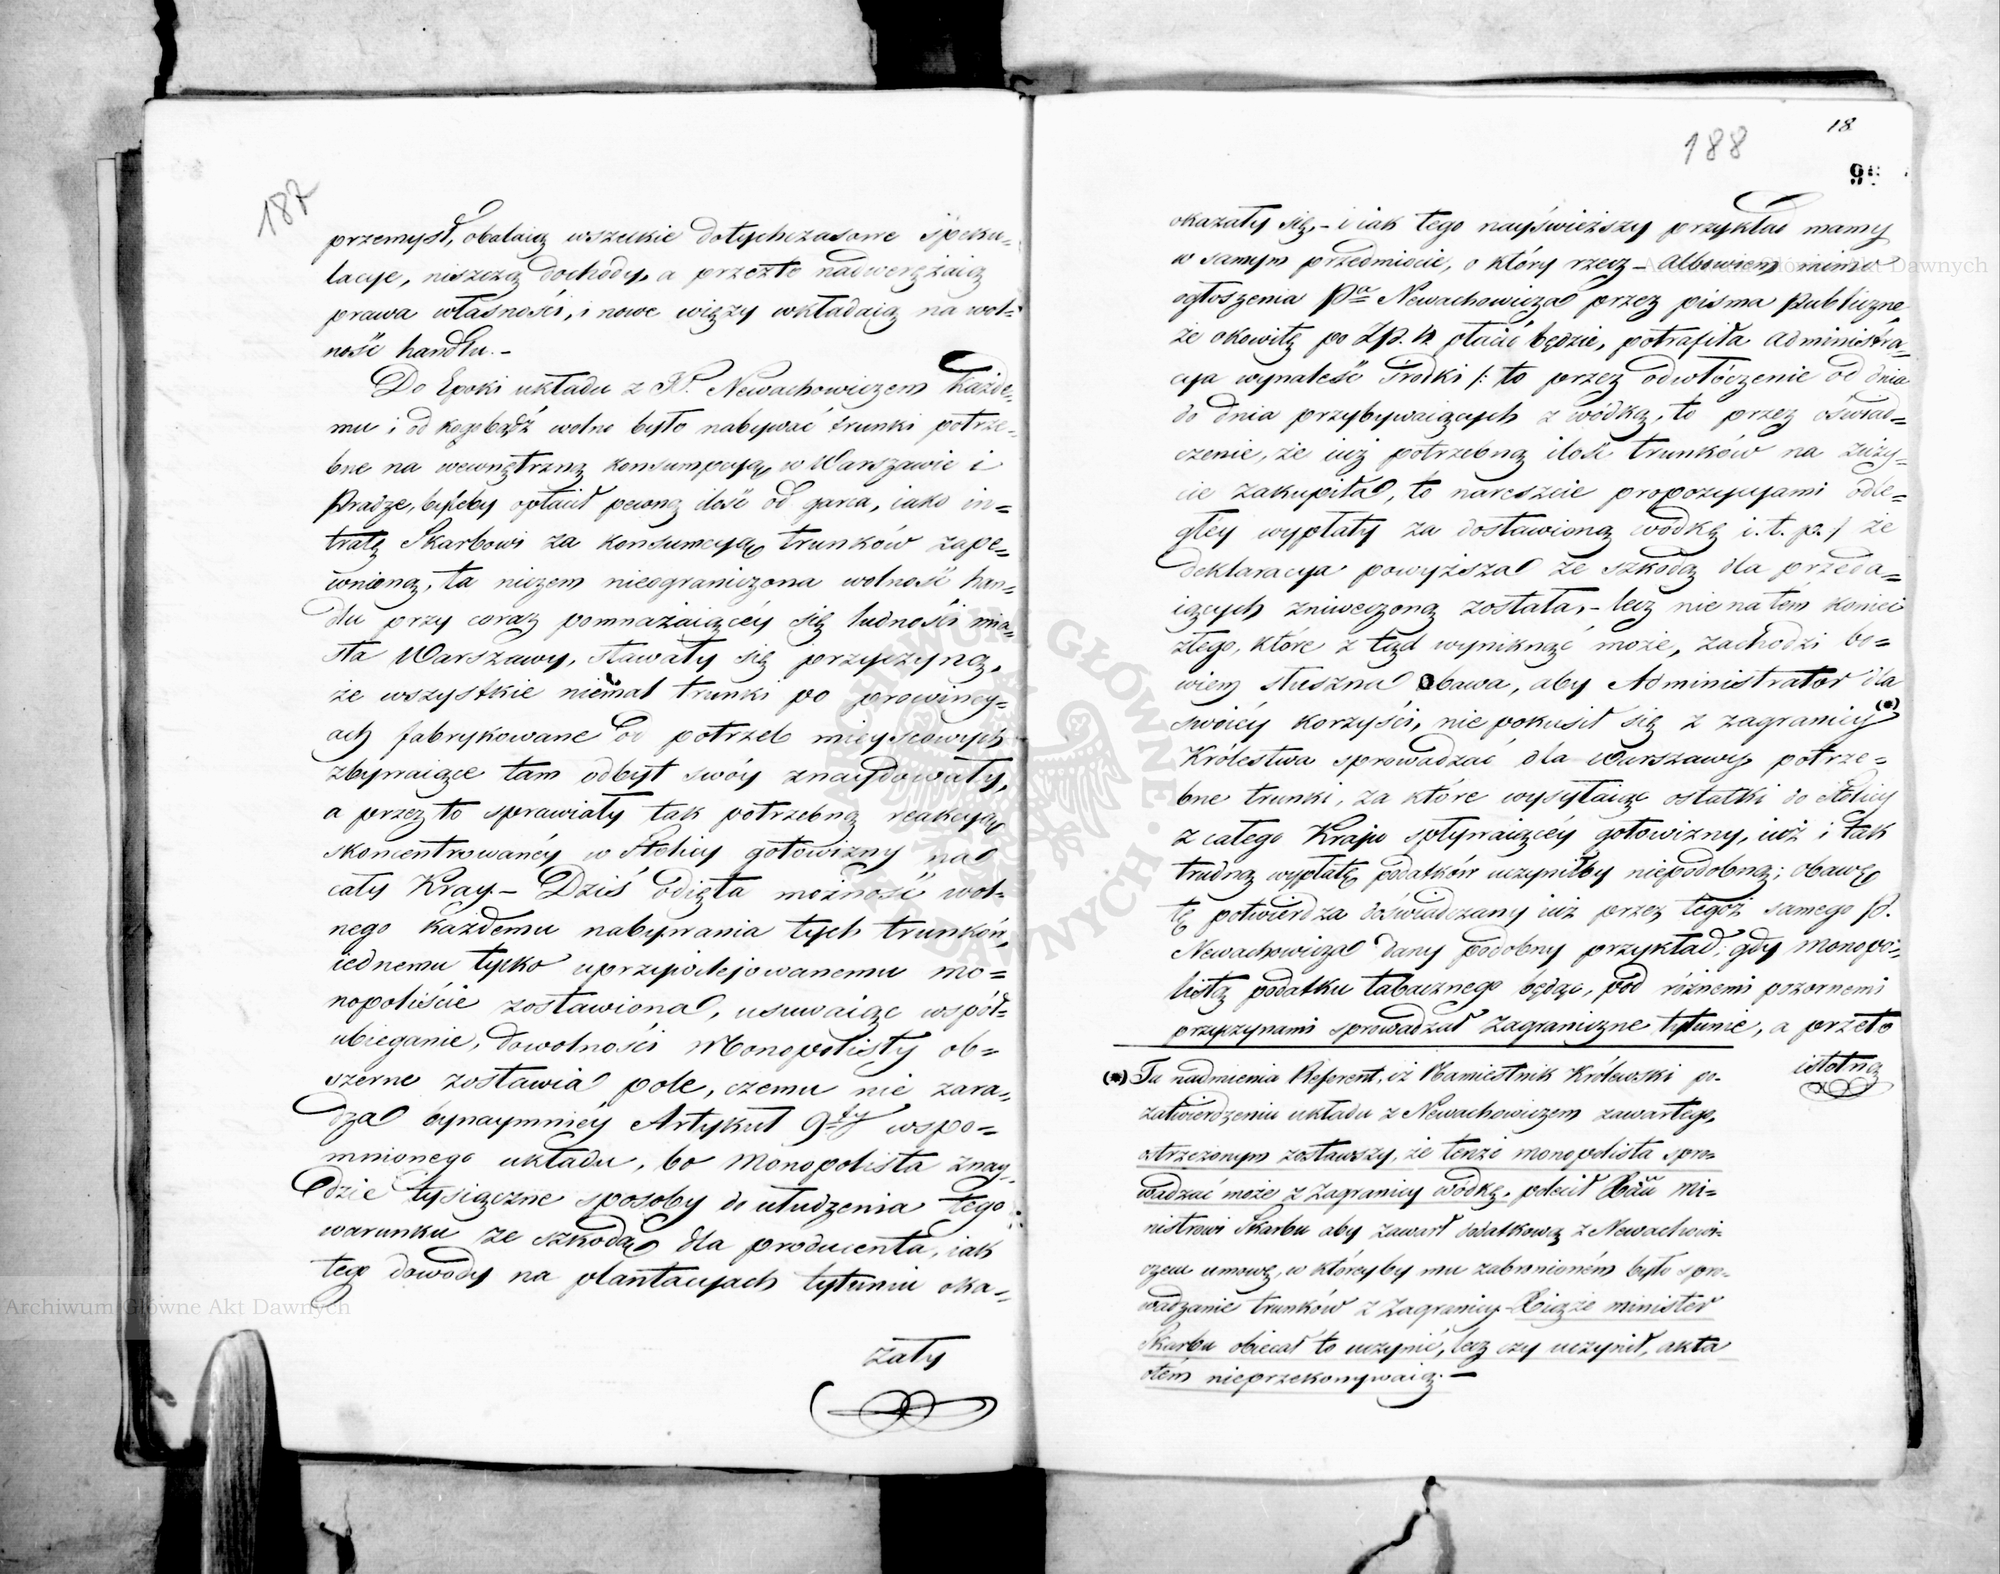 187
przemysł, obalaią wszelkie dotychczasowe speku-
lacye, niszczą dochody, a przezto nadwerężaią
prawa własności, i nowe więzy wkładaią na wol-
ność handlu. –
Do Epoki układu z P. Newachowiczem każde-
mu i od kogobądź wolno było nabywać trunki potrze-
bne na wewnętrzną konsumpcyą w Warszawie i
Pradze, byleby opłacił pewną ilość od garca, iako in-
tratę Skarbowi za konsumcyą trunków zape-
wnioną, ta niczem nieograniczona wolność han-
dlu przy coraz pomnażaiącéy się ludności mia-
sta Warszawy, stawały się przyczyną,
że wszystkie niemal trunki po prowincy-
ach fabrykowane od potrzeb mieyscowych
zbywaiące tam odbyt swóy znaydowały,
a przez to sprawiały tak potrzebną reakcyą
skoncentrowanéy w Stolicy gotowizny na
cały Kray – Dziś odięta możność wol-
nego każdemu nabywania tych trunków,
iednemu tylko uprzywilejowanemu mo-
nopoliście zostawiona, usuwaiąc współ-
ubieganie, dowolności Monopolisty ob-
szerne zostawia pole, czemu nie zara-
dza bynaymniéy Artykuł 9ty wspo-
mnionego układu, bo Monopolista znay-
dzie tysiączne sposoby do ułudzenia tego
warunku ze szkodą dla producenta, iak
tego dowody na plantacyach tytuniu oka-
zały
188
18
okazały się, – i iak tego nayświeższy przykład mamy
w samym przedmiocie, o który rzecz – Albowiem mimo
ogłoszenia Pa Newachowicza przez pisma Publiczne
że okowitę po Złp. płacić będzie, potrafiła Administra-
cya wynaleść środki /: to przez odwłóczenie od dnia
do dnia przybywaiących z wódką, to przez oświad-
czenie, że iuż potrzebną ilość trunków na zuży-
cie zakupiła, to nareszcie propozycyami odle-
głey wypłaty za dostawioną wódkę i. t. p. / że
deklaracya powyższa ze szkodą dla przeda-
iących zniweczoną została, – lecz nie na tém koniec
złego, które z tąd wyniknąć może, zachodzi bo-
wiem słuszna obawa, aby Administrator dla
swoiéy korzyści, nie pokusił się z zagranicy (*)
Królestwa sprowadzać dla Warszawy potrze-
bne trunki, za które wysyłaiąc ostatki do Stolicy
z całego Kraju spływaiącéy gotowizny, iuż i tak
trudną wypłatę podatków uczyniłby niepodobną; obawę
tę potwierdza doświadczany iuż przez tegoż samego P.
Newachowicza dany podobny przykład; gdy Monopo-
listą podatku tabacznego będąc, pod różnemi pozornemi
przyczynami sprowadzał Zagraniczne tytunie, a przeto
istotną
(*) Tu nadmienia Referent, iż Namiestnik Królewski po
zatwierdzeniu układu z Newachowiczem zawartego,
ostrzeżonym zostawszy, że tenże monopolista spro-
wadzać może z Zagranicy wódkę, polecił Mi-
nistrowi Skarbu aby zawarł dodatkową z Newachowi-
czem umowę, w któreyby mu zabronioném było spro-
wadzanie trunków z Zagranicy – Xiąże minister
Skarbu obiecał to uczynić, lecz czy uczynił, akta
o tém nieprzekonywaią. –
Archiwum Główne Akt Dawnych